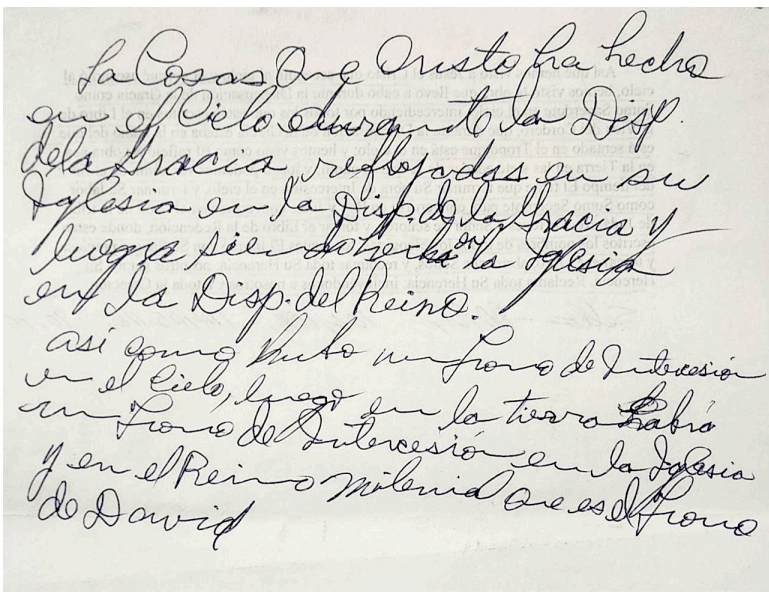 La Cosas Que Cristo ha hecho
en el Cielo durante la Desp.
de la Gracia, reflejadas en su
Iglesia en la Disp. de la Gracia y
luego siendo hecha en la Iglesia
en la Disp. del Reino.
así como hubo un Trono de Intercesión
en el Cielo, luego en la tierra habrá
un Trono de Intercesión en la Iglesia
y en el Reino Milenial que es el Trono
de David